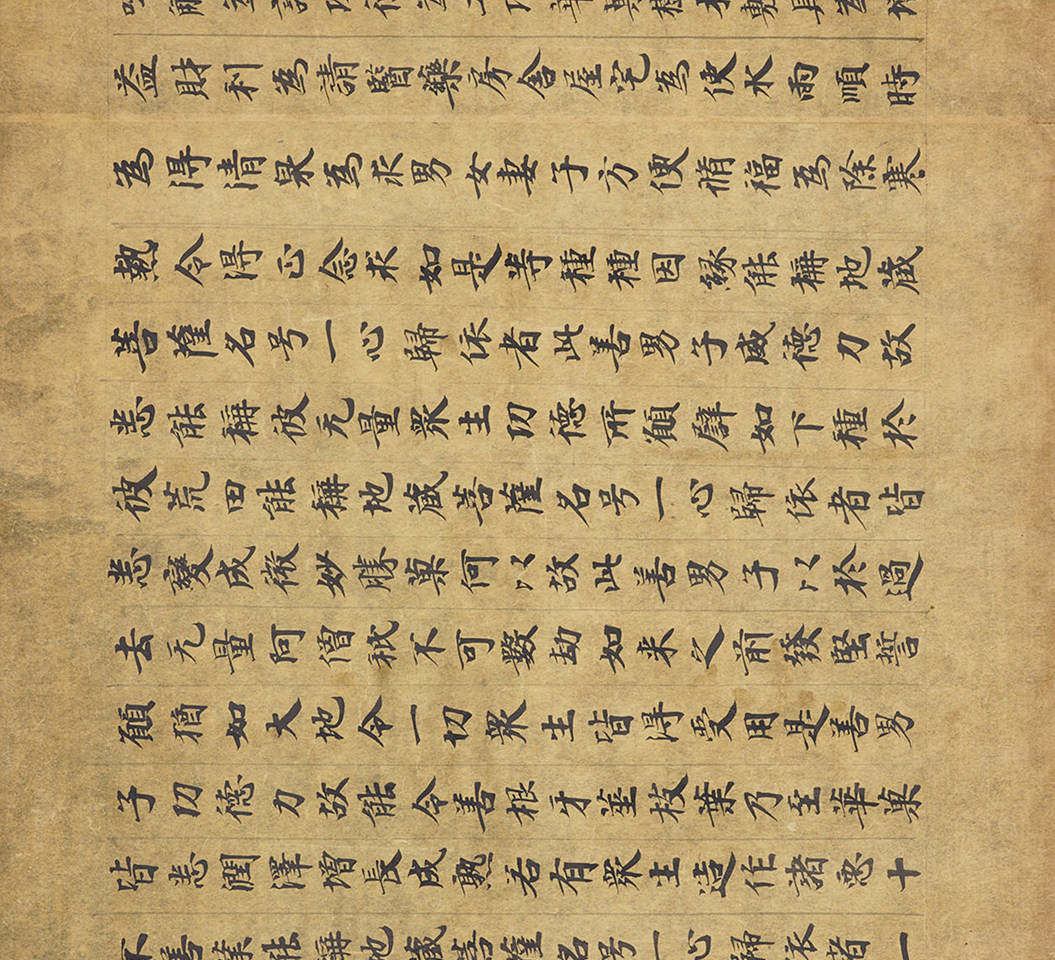 益財利為請醫藥房舍屋宅為使水雨順時
為得清泉為求男女妻子方便脩福為除寒
熱令得正念求如是等種種因緣能稱地藏
菩薩名号一心歸依者此善男子威德力故
悉能稱彼无量眾生功德所願譬如下種於
彼荒田能稱地藏菩薩名号一心歸依者皆
悉變成微妙勝菓何以故此善男子以於過
去无量阿僧祇不可數劫如來之前發堅誓
願猶如大地令一切眾生皆得受用是善男
子功德力故能令善根牙莖枝葉乃至華菓
皆悉潤澤增長成熟若有眾生造作諸惡十
不善業能稱地藏菩薩名号一心歸依者一